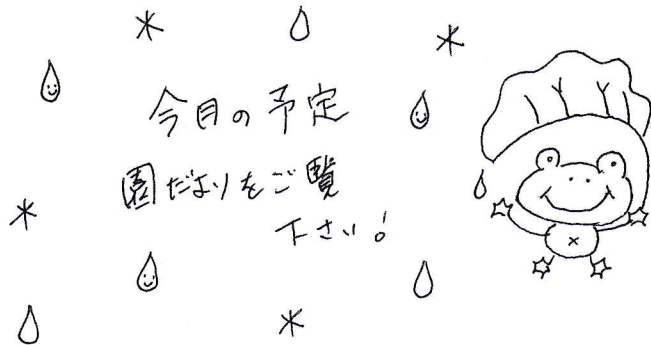 今月の予定
園だよりをご覧
下さい!